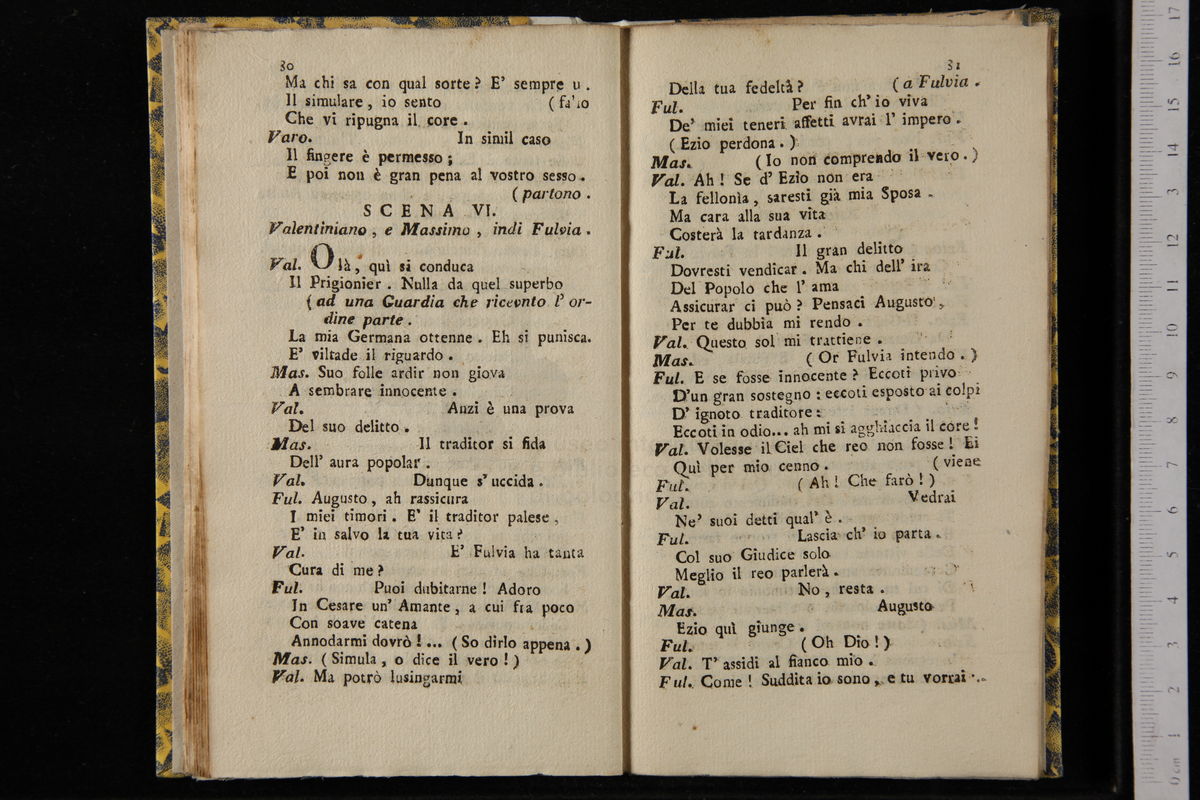 30
Ma chi sa con qual sorte? E' sempre u.
Il simulare, io sento (fa'io
Che vi ripugna il core.
Varo. In simil caso
Il fingere è permesso;
E poi non è gran pena al vostro sesso.
(partono.
SCENA VI.
Valentiniano, e Massimo, indi Fulvia.
Val. Olà, quì si conduca
Il Prigionier. Nulla da quel superbo
(ad una Guardia che ricevuto l' or-
dine parte.
La mia Germana ottenne. Eh si punisca.
E' viltade il riguardo.
Mas. Suo folle ardir non giova
A sembrare innocente.
Val. Anzi è una prova
Del suo delitto.
Mas. Il traditor si fida
Dell' aura popolar.
Val. Dunque s' uccida.
Ful. Augusto, ah rassicura
I miei timori. E' il traditor palese,
E' in salvo la tua vita?
Val. E' Fulvia ha tanta
Cura di me?
Ful. Puoi dubitarne! Adoro
In Cesare un' Amante, a cui fra poco
Con soave catena
Annodarmi dovrò!... (So dirlo appena.)
Mas. (Simula, o dice il vero!)
Val. Ma potrò lusingarmi
31
Della tua fedeltà? (a Fulvia.
Ful. Per fin ch' io viva
De' miei teneri affetti avrai l' impero.
(Ezio perdona.)
Mas. (Io non comprendo il vero.)
Val. Ah! Se d' Ezio non era
La fellonìa, saresti già mia Sposa.
Ma cara alla sua vita
Costerà la tardanza.
Ful. Il gran delitto
Dovresti vendicar. Ma chi dell' ira
Del Popolo che l' ama
Assicurar ci può? Pensaci Augusto,
Per te dubbia mi rendo.
Val. Questo sol mi trattiene.
Mas. (Or Fulvia intendo.)
Ful. E se fosse innocente? Eccoti privo
D'un gran sostegno: eccoti esposto ai colpi
D' ignoto traditore:
Eccoti in odio... ah mi si agghiaccia il core!
Val. Volesse il Ciel che reo non fosse! Ei
Quì per mio cenno. (viene
Ful. (Ah! Che farò!)
Val. Vedrai
Ne' suoi detti qual' è.
Ful. Lascia ch' io parta.
Col suo Giudice solo
Meglio il reo parlerà.
Val. No, resta.
Mas. Augusto
Ezio quì giunge.
Ful. (Oh Dio!)
Val. T' assidi al fianco mio.
Ful. Come! Suddita io sono, e tu vorrai...
0 cm 1 2 3 4 5 6 7 8 9 10 11 12 13 14 15 16 17